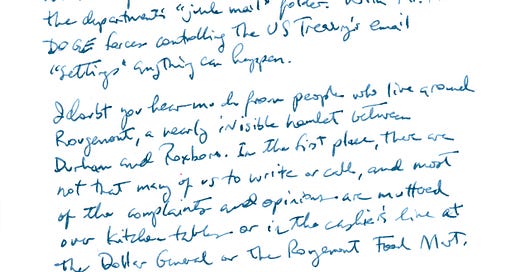 the department's "junk mail" folder. With
DOGE forces controlling the US Treasury's email
"settings" anything can happen.
I doubt you hear much from people who live around
Rougemont, a nearly invisible hamlet between
Durham and Roxboro. In the first place, there are
not that many of us to write or call, and most
of the complaints and opinions are muttered
over kitchen tables or in the cashier's line at
the Dollar General or the Rougemont Food Mart.